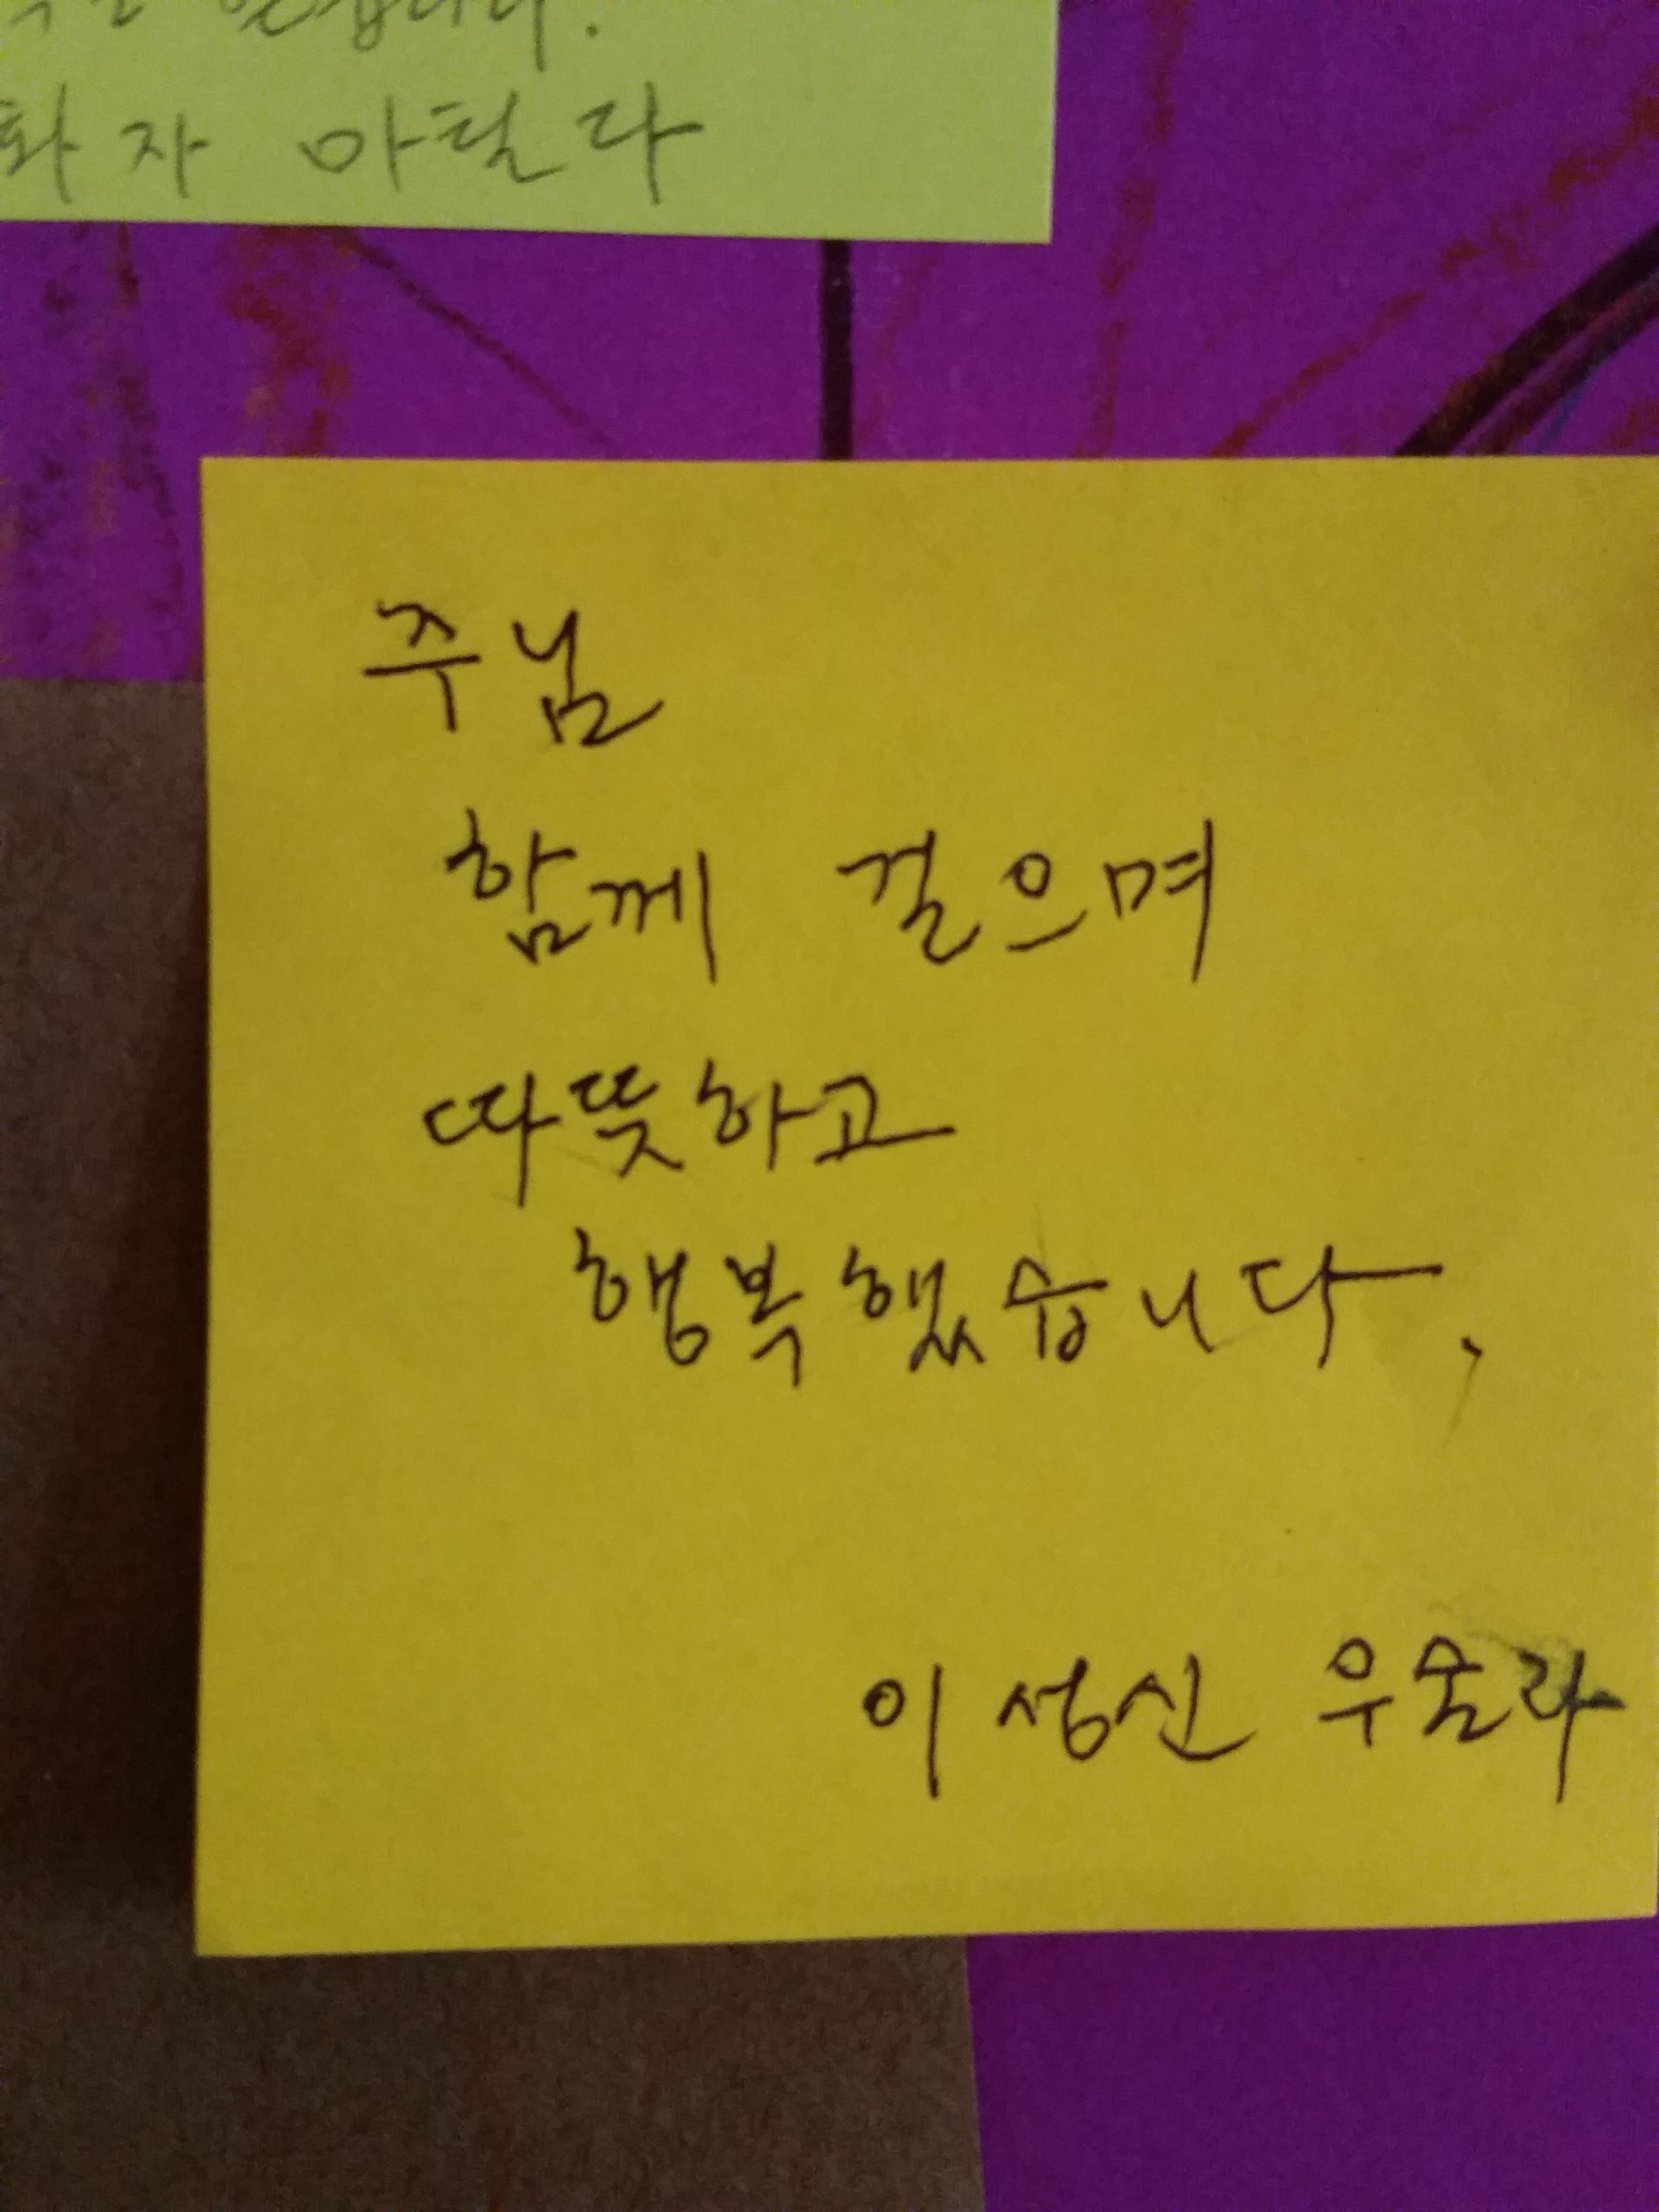 화자 아틸다
주님
함께 걸으며
따뜻하고
행복했습니다.
이성신 우술라